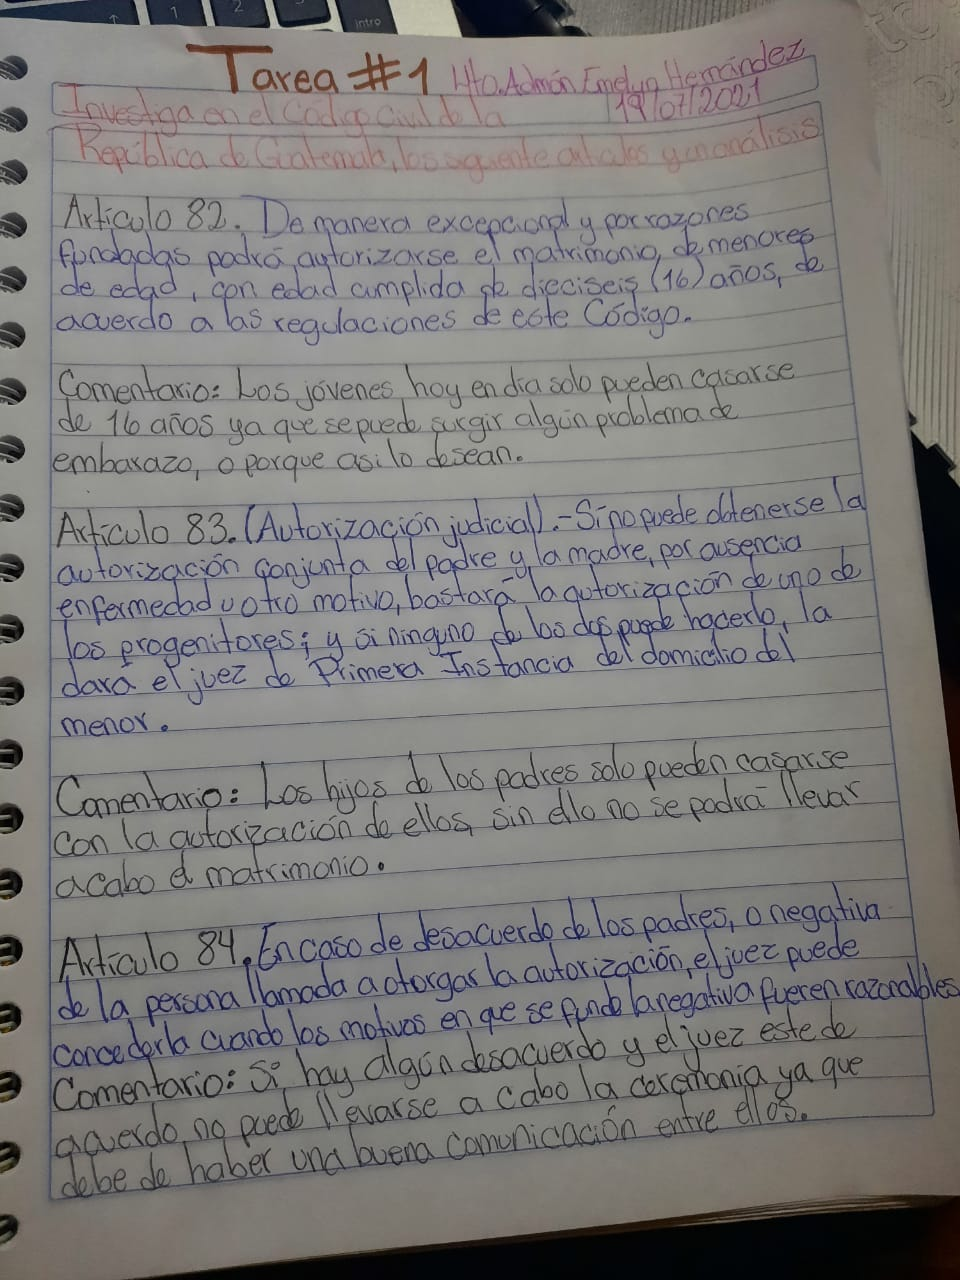 Tarea #1 4to.Admón Emelyn Hernández
19/07/2021
Investiga en el Código Civil de la
República de Guatemala, los siguiente articulos y un análisis
Artículo 82. De manera excepcional y por razones
fundadas podrá autorizarse el matrimonio, de menores
de edad, con edad cumplida de dieciseis (16) años, de
acuerdo a las regulaciones de este Código.
Comentario: Los jóvenes hoy en dia solo pueden casarse
de 16 años ya que se puede surgir algún problema de
embarazo, o porque asi lo desean.
Artículo 83. (Autorización judicial).- Si no puede obtenerse la
autorización conjunta del padre y la madre, por ausencia
enfermedad u otro motivo, bastará la autorización de uno de
los progenitores; y si ninguno de los dos puede hacerlo, la
dará el juez de Primera Instancia del domicilio del
menor.
Comentario: Los hijos de los padres solo pueden casarse
con la autorización de ellos, sin ello no se podrá llevar
acabo el matrimonio.
Artículo 84. En caso de desacuerdo de los padres, o negativa
de la persona llamada a otorgar la autorización, el juez puede
concederla cuando los motivos en que se funde la negativa fueren razonables
Comentario: Si hay algún desacuerdo y el juez este de
acuerdo, no puede llevarse a cabo la ceremonia ya que
debe de haber una buena comunicación entre ellos.